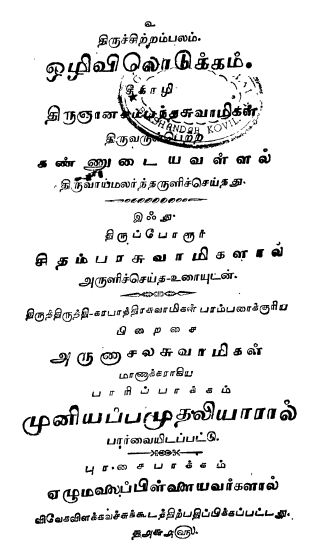 உ
திருச்சிற்றம்பலம்.
ஒழிவிலொடுக்கம்.
சீகாழி
திருஞானசம்பந்தசுவாமிகள்
திருவருள்பெற்ற
கண்ணுடையவள்ளல்
திருவாய்மலர்ந்தருளிச்செய்தது.
இஃது
திருப்போரூர்
சிதம்பரசுவாமிகளால்
அருளிச்செய்த-உரையுடன்.
பிறைசை
அருணாசலசுவாமிகள்
மாணாக்கராகிய
பாரிப்பாக்கம்
முனியப்பமுதலியாரால்
பார்வையிடப்பட்டு.
புரசைபாக்கம்
ஏழுமலைப்பிள்ளையவர்களால்
விவேகவிளக்கவச்சுக்கூடத்திற்பதிப்பிக்கப்பட்டது.